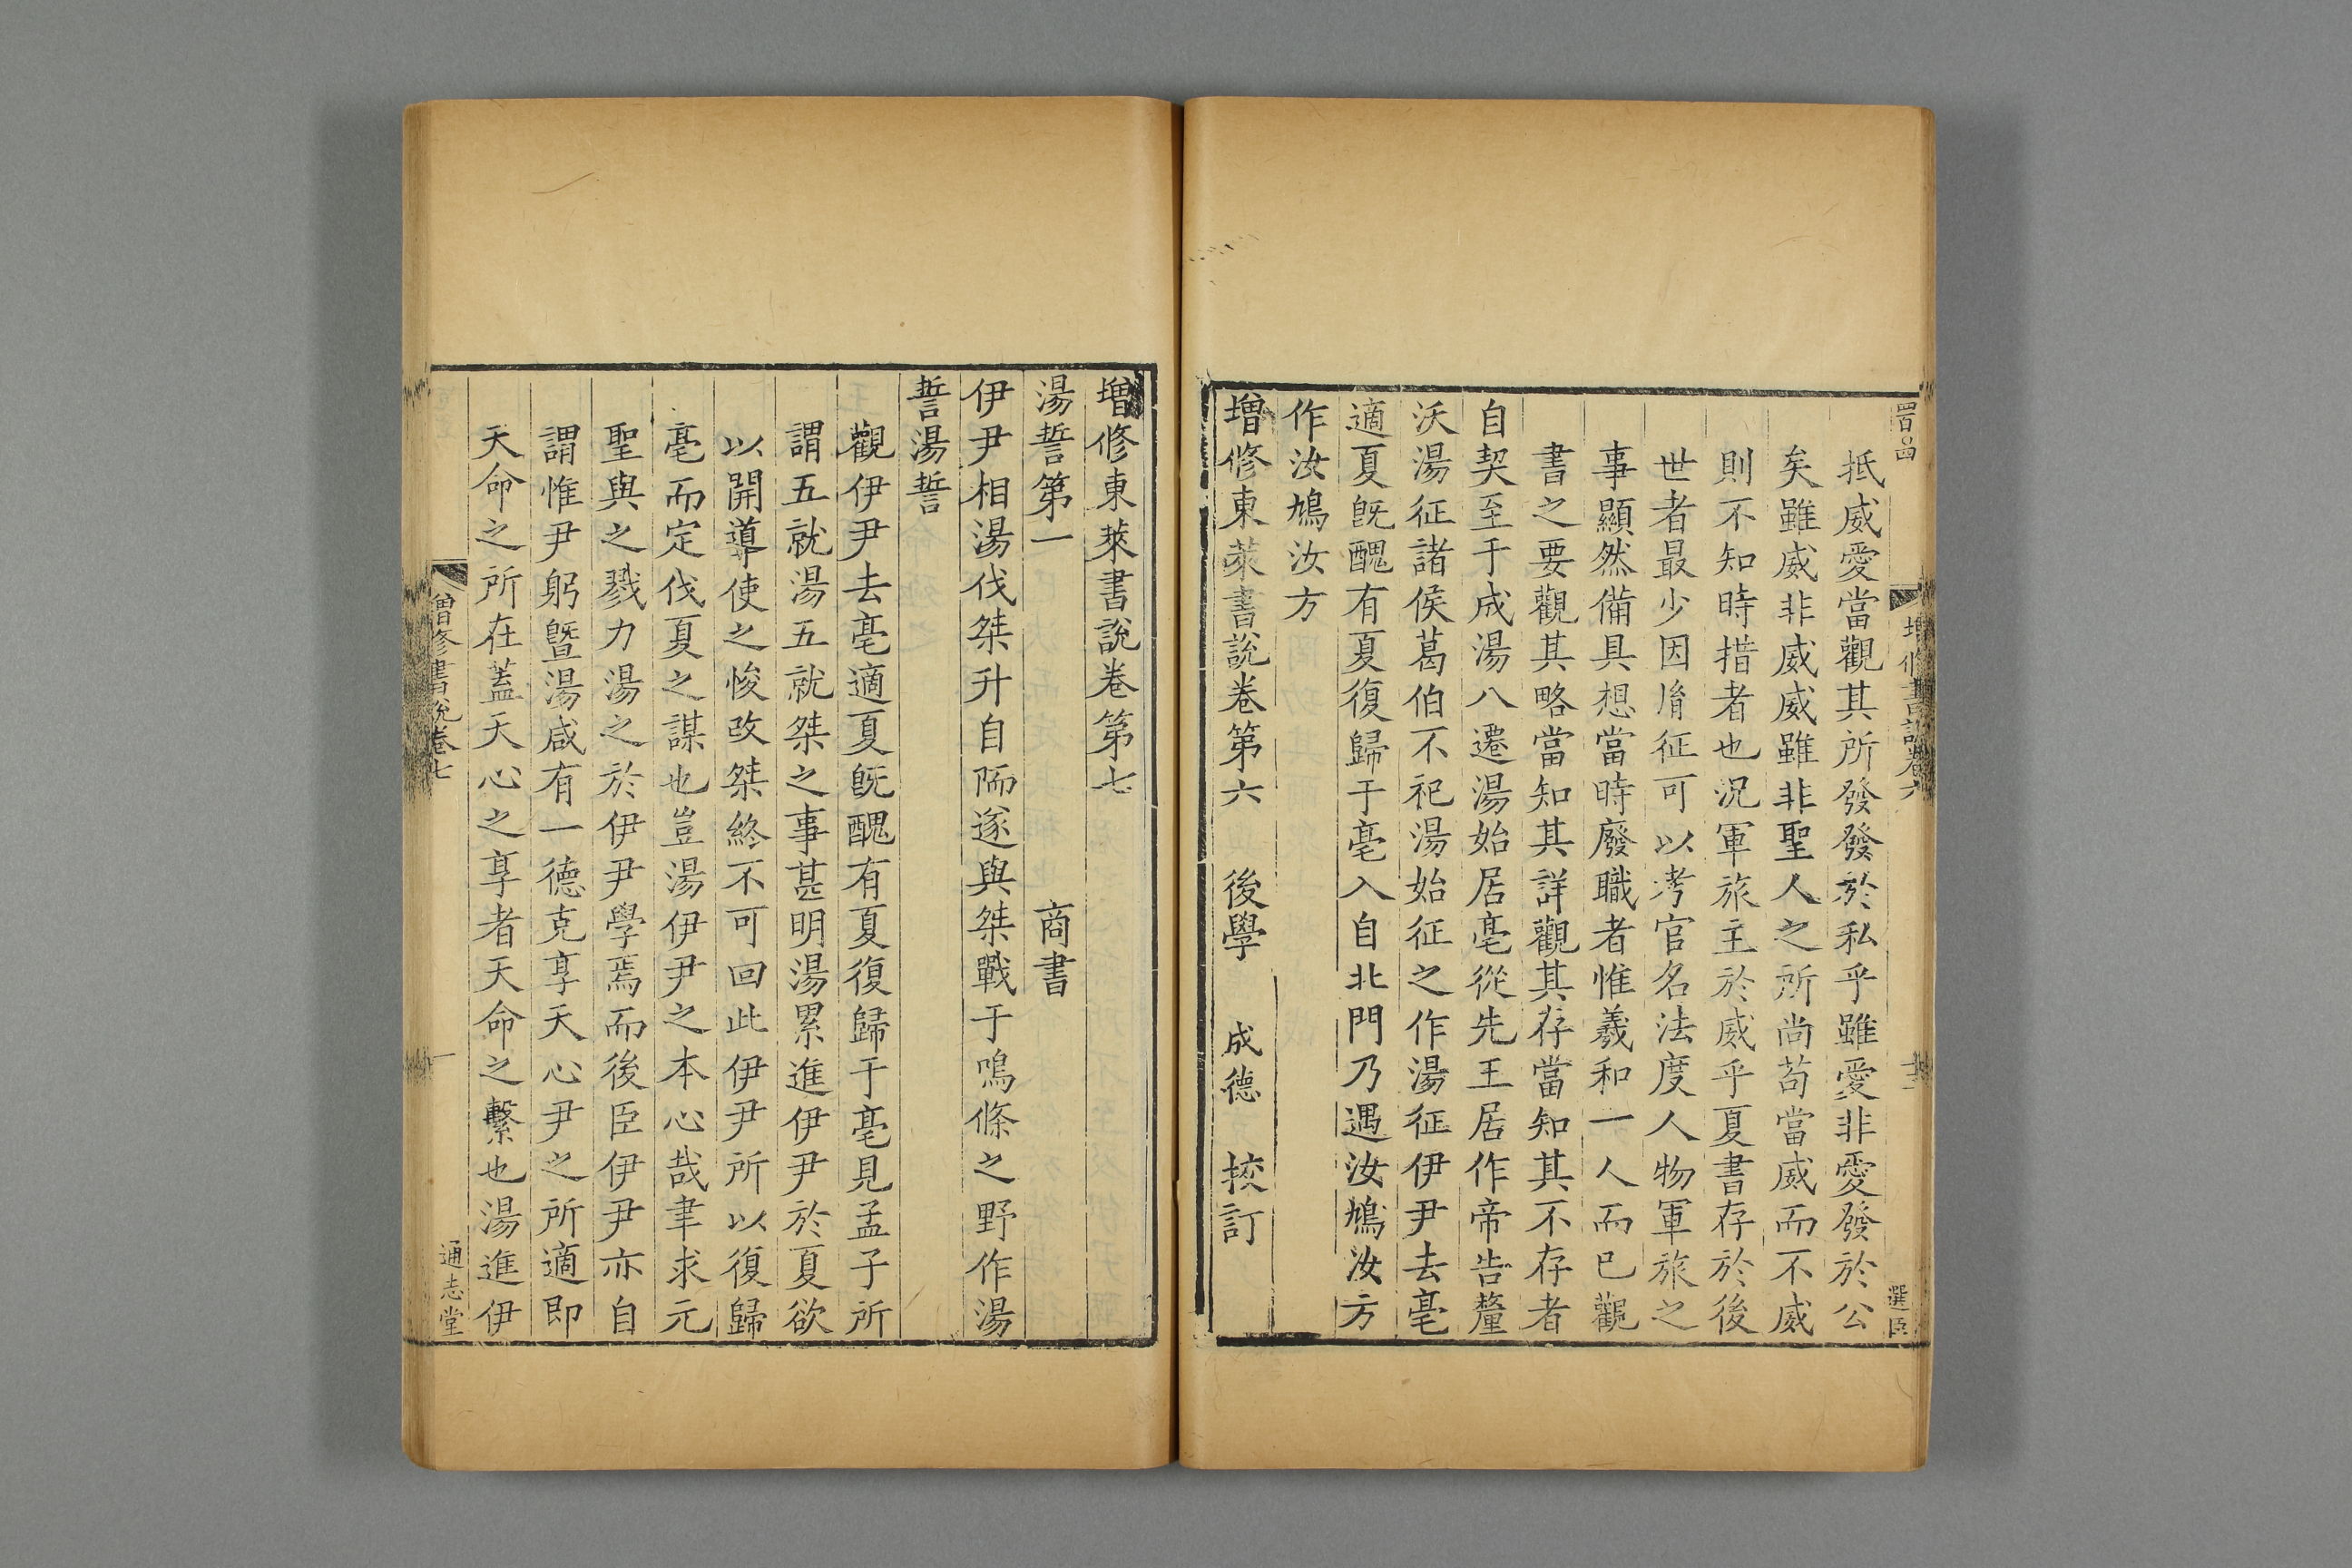 抵威愛當觀其所發發於私乎雖愛非愛發於公
矣雖威非威威雖非聖人之所尚苟當威而不威
則不知時措者也況軍旅主於威乎夏書存於後
世者最少因胤征可以考官名法度人物軍旅之
事顯然備具想當時廢職者惟羲和一人而已觀
書之要觀其略當知其詳觀其存當知其不存者
自契至于成湯八遷湯始居亳從先王居作帝告釐
沃湯征諸侯葛伯不祀湯始征之作湯征伊尹去亳
適夏旣醜有夏復歸于亳入自北門乃遇汝鳩汝方
作汝鳩汝方
增修東萊書說卷第六 後學 成德 挍訂
增修書說卷六
選臣
增修東萊書說卷第七
湯誓第一 商書
伊尹相湯伐桀升自陑遂與桀戰于鳴條之野作湯
誓湯誓
觀伊尹去亳適夏旣醜有夏復歸于亳見孟子所
謂五就湯五就桀之事甚明湯累進伊尹於夏欲
以開導使之悛改桀終不可回此伊尹所以復歸
亳而定伐夏之謀也豈湯伊尹之本心哉聿求元
聖與之戮力湯之於伊尹學焉而後臣伊尹亦自
謂惟尹躬曁湯咸有一德克享天心尹之所適即
天命之所在蓋天心之享者天命之繫也湯進伊
增修書說卷七
一
通志堂